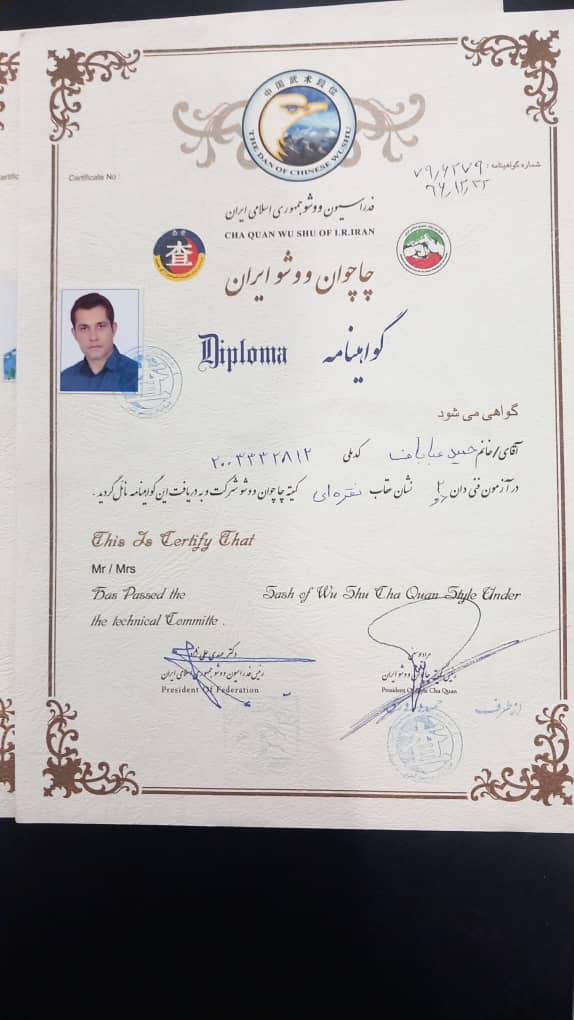 中国武术段位
THE DAN OF CHINESE WUSHU
Certificate No :
شماره گواهینامه : ۷۹٫۶۲۷۹
۹۶٫۱۲٫۲۲
فدراسیون ووشو جمهوری اسلامی ایران
CHA QUAN WU SHU OF I.R.IRAN
查
چاچوان ووشو ایران
Diploma گواهینامه
گواهی می شود
آقای/خانم حمید عبا باف کد ملی ۲۰۰۳۳۳۲۸۱۲
در آزمون فنی دان ۲ نشان عقاب نقره ای کمیته چاچوان ووشو شرکت و به دریافت این گواهینامه نائل گردید .
This Is Certify That
Mr / Mrs
Has Passed the Sash of Wu Shu Cha Quan Style Under
the technical Committe .
دکتر مهدی علی نژاد
رئیس فدراسیون ووشو جمهوری اسلامی ایران رئیس کمیته چاچوان ووشو ایران
President Of Federation President Of Style Cha Quan
از طرف